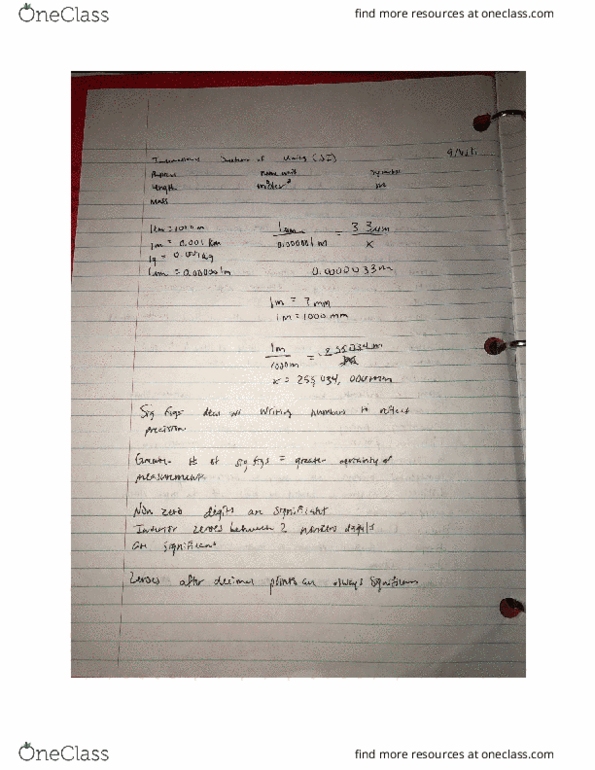 OneClass
find more resources at oneclass.com
International System of Units (SI)
Physical name unit symbol
Length meter m
Mass
1km = 1000m
1m = 0.001 km
1g = 0.001kg
1um = 0.000001m
1um / 0.000001m = 3.3um / x
0.0000033m
1m = ? mm
1m = 1000mm
1m / 1000m = 255034m
x = 255,034,000mm
Sig Figs deal w/ writing numbers to reflect
precision
Greater # of sig figs = greater certainty of
measurements
Non zero digits are significant
Interior zeroes between 2 nonzero digits
are significant
Zeroes after decimal points are always significant
OneClass
find more resources at oneclass.com